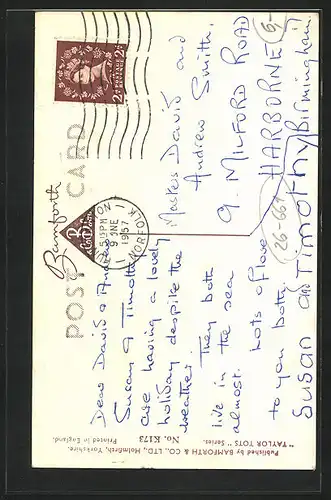 POST CARD
Bamforth
POSTAGE REVENUE
2½D 2½D
5.15 PM
9 JNE
1957
NORFOLK
Dear David & Andrew
Susan & Timothy
are having a lovely
holiday despite the
weather. They both
live in the sea
almost. Lots of love
to you both
Susan and Timothy
Masters David and
Andrew Smith,
9 MILFORD ROAD
HARBORNE
Birmingham
26-669
5,-
"TAYLOR TOTS" Series.
No. K173
Published by BAMFORTH & CO., LTD., Holmfirth, Yorkshire.
Printed in England.